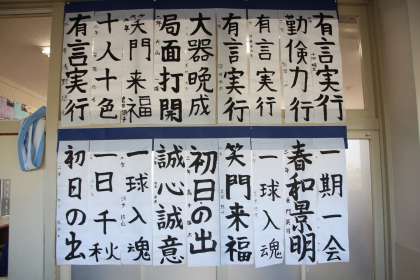 有言実行
勤倹力行
有言実行
有言実行
大器晩成
局面打開
笑門来福
十人十色
有言実行
一期一会
春和景明
一球入魂
笑門来福
初日の出
誠心誠意
一球入魂
一日千秋
初日の出